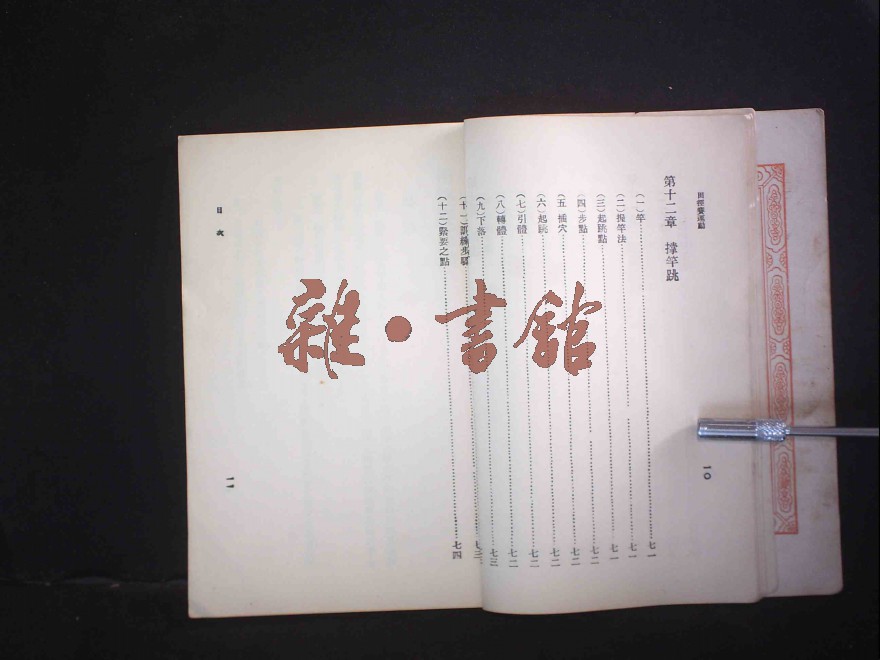 田徑賽運動
第十二章 撐竿跳
(一)竿……七一
(二)握竿法……七一
(三)起跳點……七一
(四)步點……七二
(五)插穴……七二
(六)起跳……七二
(七)引體……七二
(八)轉體……七三
(九)下落……七三
(十一)訓練步驟
(十二)緊要之點……七四
一〇
目次
一一
雜·書館